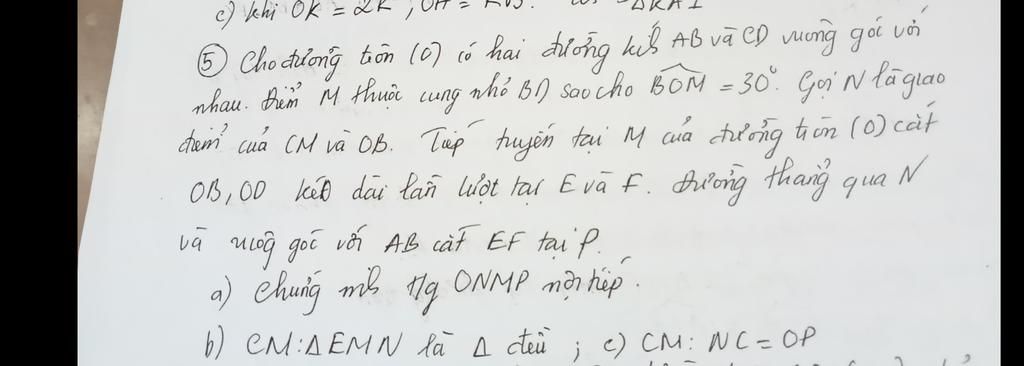 c) khi OK = 2R
⑤ Cho đường tròn (O) có hai đường kính AB và CD vuông góc với
nhau. Điểm M thuộc cung nhỏ BD sao cho BOM = 30°. Gọi N là giao
điểm của CM và OB. Tiếp tuyến tại M của đường tròn (O) cắt
OB, OD kéo dài lần lượt tại E và F. Đường thẳng qua N
và vuông góc với AB cắt EF tại P.
a) Chứng minh t/g ONMP nội tiếp.
b) CM: ΔEMN là Δ đều ; c) CM: NC = OP